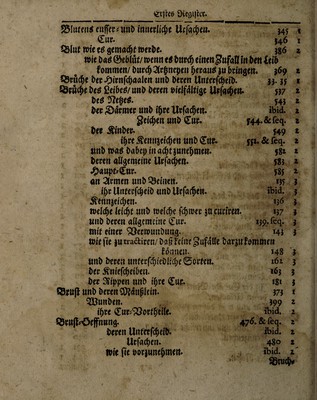 Erstes Register.
Blutens eusser- und innerliche Ursachen. 345 1
Cur. 346 1
Blut wie es gemacht werde. 386 2
wie das Geblüt/ wenn es durch einen Zufall in den Leib
kommen/ durch Artzneyen heraus zu bringen. 369 2
Brüche der Hirnschaalen und deren Unterscheid. 33. 35 1
Brüche des Leibes/ und deren vielfältige Ursachen. 537 2
des Netzes. 543 2
der Därmer und ihre Ursachen. ibid. 2
Zeichen und Cur. 544. & seq. 2
der Kinder. 549 2
ihre Kennzeichen und Cur. 551. & seq. 2
und was dabey in acht zunehmen. 582 2
deren allgemeine Ursachen. 583 2
Haupt-Cur. 585 2
an Armen und Beinen. 135 3
ihr Unterscheid und Ursachen. ibid. 3
Kennzeichen. 136 3
welche leicht und welche schwer zu curiren. 137 3
und deren allgemeine Cur. 139. seq. 3
mit einer Verwundung. 143 3
wie sie zu tractiren/ daß keine Zufälle darzu kommen
können. 148 3
und deren unterschiedliche Sorten. 162 3
der Kniescheiben. 163 3
der Rippen und ihre Cur. 181 3
Brust und deren Mäußlein. 373 1
Wunden. 399 2
ihre Cur-Vortheile. ibid. 2
Brust-Oeffnung. 476. & seq. 2
deren Unterscheid. ibid. 2
Ursachen. 480 2
wie sie vorzunehmen. ibid. 2
Bruch-